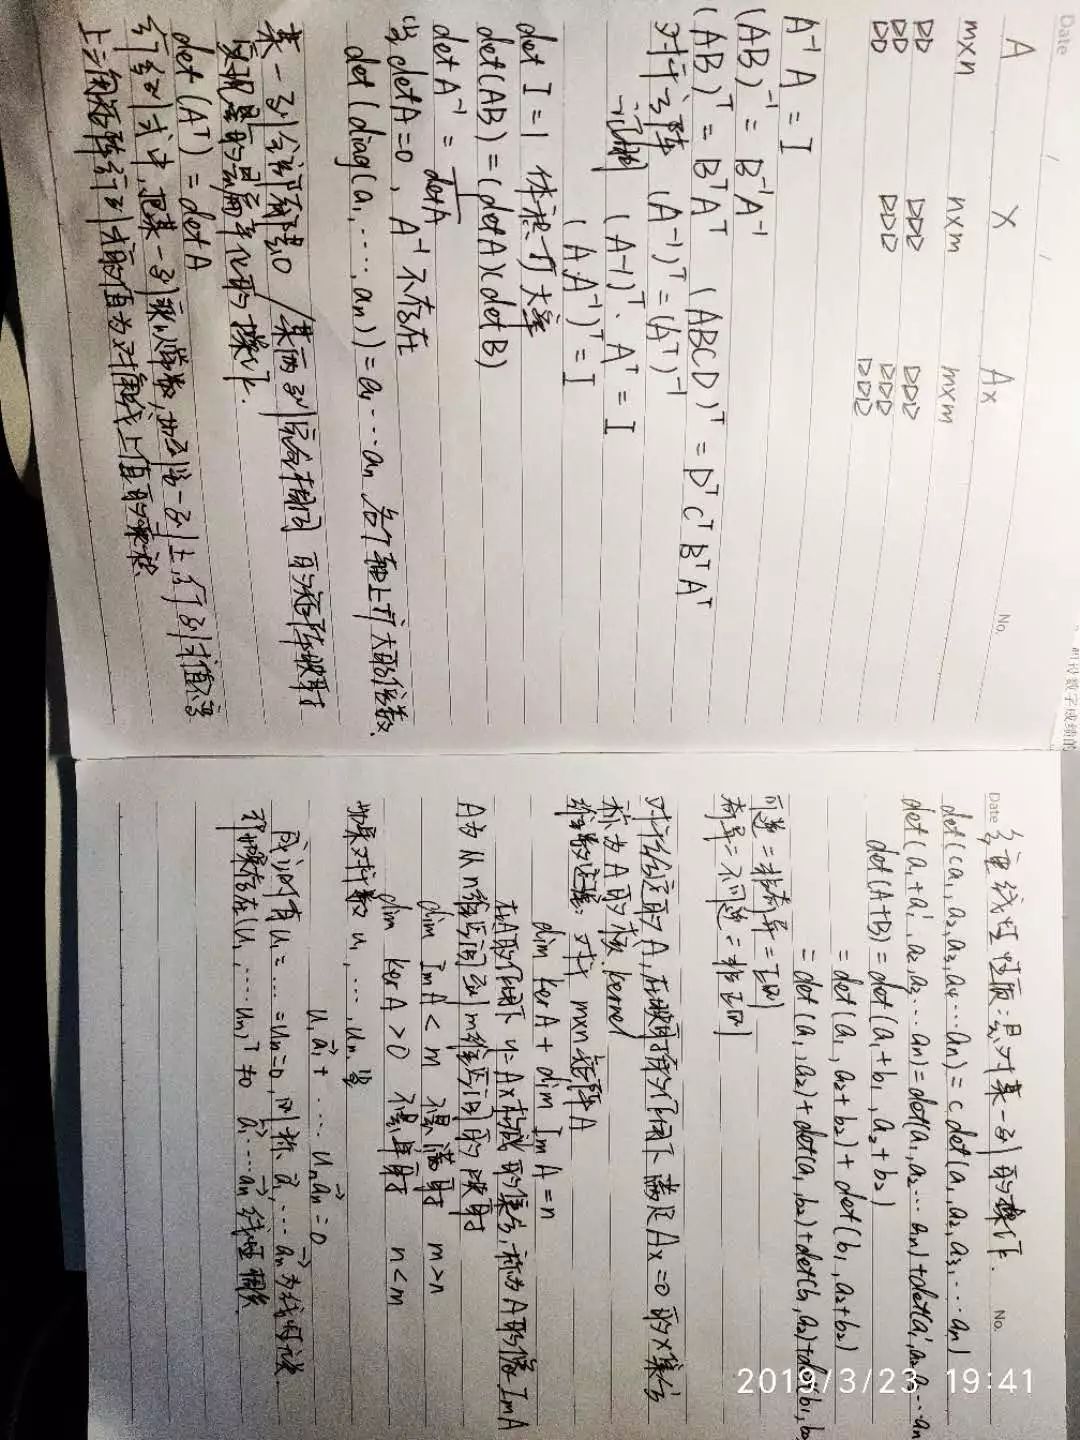 Date
No.
A X Ax
m×n n×m m×m
A⁻¹A = I
(AB)⁻¹ = B⁻¹A⁻¹
(AB)ᵀ = BᵀAᵀ (ABCD)ᵀ = DᵀCᵀBᵀAᵀ
对于方阵 (A⁻¹)ᵀ = (Aᵀ)⁻¹
证明 (A⁻¹)ᵀ · Aᵀ = I
(A A⁻¹)ᵀ = I
det I = 1 体积扩大率
det(AB) = (det A)(det B)
det A⁻¹ = 1/det A
当 det A = 0, A⁻¹ 不存在
det(diag(a₁, ⋯, aₙ)) = a₁⋯aₙ 各个轴上扩大的倍数.
某一列全部都是0 / 某两列完全相同 的矩阵映射
实现是的扁平化的操作.
det(Aᵀ) = det A
行列式中,把某一列乘以常数,加到另一列上,行列式值不变
上三角矩阵行列式的值为对角线上值的乘积.
Date
No.
多重线性性质:是对某一列的操作.
det(ca₁, a₂, a₃, a₄ ⋯ aₙ) = c·det(a₁, a₂, a₃, ⋯ aₙ)
det(a₁+a₁', a₂, a₃ ⋯ aₙ) = det(a₁, a₂ ⋯ aₙ) + det(a₁', a₂ ⋯ aₙ
det(A+B) = det(a₁+b₁, a₂+b₂)
= det(a₁, a₂+b₂) + det(b₁, a₂+b₂)
= det(a₁, a₂) + det(a₁, b₂) + det(b₁, a₂) + det(b₁, b₂
可逆 = 非奇异 = 正则
奇异 = 不可逆 = 非正则
对于给定的A,在映射的作用下满足Ax=0的x集合
称为A的核. kernel
维数定理: 对于 m×n 矩阵 A
dim ker A + dim Im A = n
在A的作用下 y=Ax 构成的集合,称为A的像 Im A
A为从n维空间到m维空间的映射
dim Im A < m 不是满射 m>n
dim ker A > 0 不是单射 n<m
如果对于数 u₁, ⋯, uₙ. 当
u₁a₁ + ⋯ uₙaₙ = 0
成立时有 u₁ = ⋯ = uₙ = 0, 则称 a₁, ⋯ aₙ 为线性无关
如果存在(u₁, ⋯ uₙ)ᵀ ≠ 0 a₁ ⋯ aₙ 线性相关.
2019/3/23 19:41